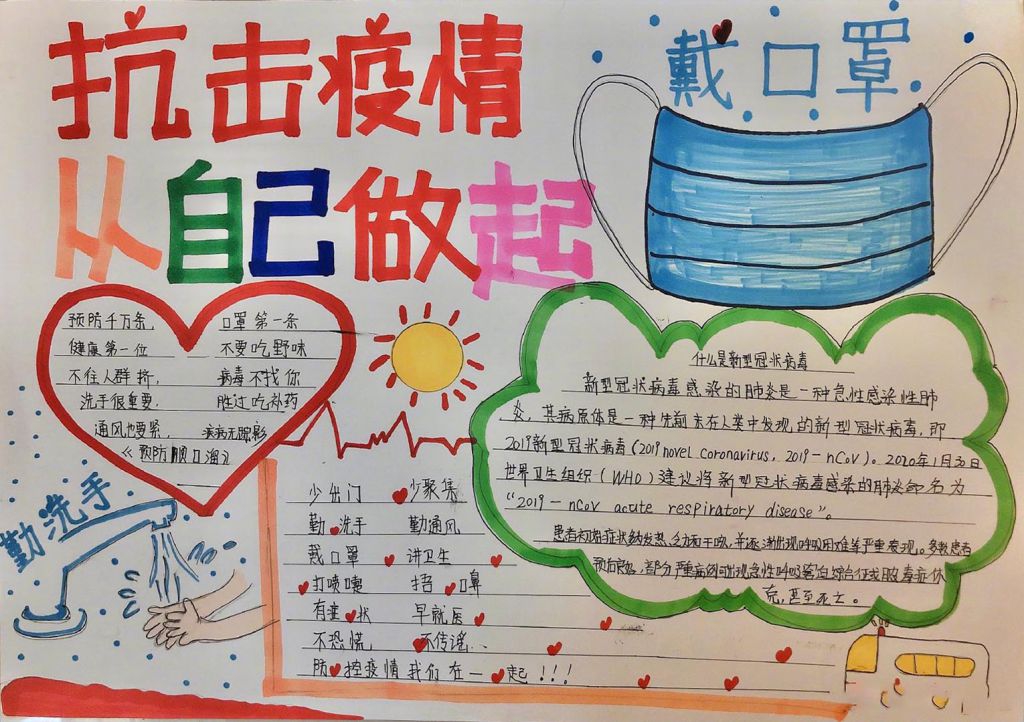 抗击疫情
从自己做起
戴口罩
预防千万条， 口罩第一条
健康第一位 不要吃野味
不往人群挤， 病毒不找你
洗手很重要， 胜过吃补药
通风也要紧， 疾病无踪影
《预防顺口溜》
什么是新型冠状病毒
新型冠状病毒感染的肺炎是一种急性感染性肺
炎，其病原体是一种先前未在人类中发现的新型冠状病毒，即
2019新型冠状病毒（2019 novel coronavirus，2019-nCoV）。2020年1月30日
世界卫生组织（WHO）建议将新型冠状病毒感染的肺炎命名为
“2019-nCoV acute respiratory disease”。
患者初始症状多为发热、乏力和干咳，并逐渐出现呼吸困难等严重表现。多数患者
预后良好，部分严重病例可出现急性呼吸窘迫综合征或脓毒症休
克，甚至死亡。
勤洗手
少出门 少聚集
勤洗手 勤通风
戴口罩 讲卫生
打喷嚏 捂口鼻
有症状 早就医
不恐慌， 不传谣...
防控疫情我们在一起！！！